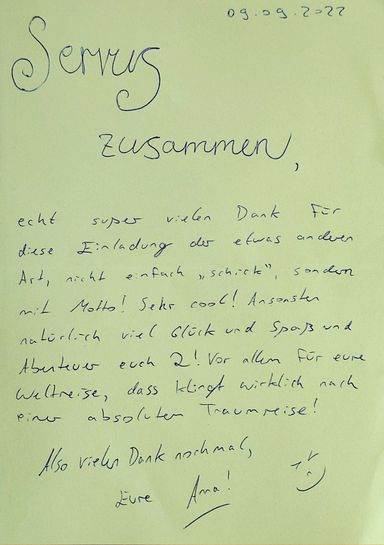 09.09.2022
Servus
zusammen,
echt super vielen Dank für
diese Einladung der etwas anderen
Art, nicht einfach „schick“, sondern
mit Motto! Sehr cool! Ansonsten
natürlich viel Glück und Spaß und
Abenteuer euch 2! Vor allem für eure
Weltreise, dass klingt wirklich nach
einer absoluten Traumreise!
Also vielen Dank nochmal,
Eure Anna!